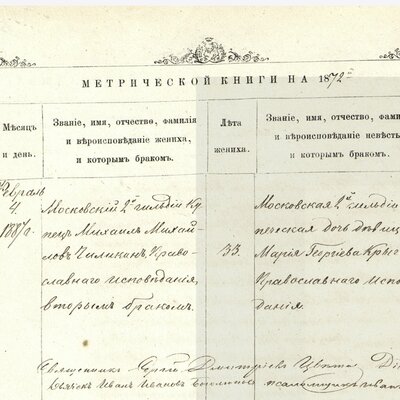 МЕТРИЧЕСКОЙ КНИГИ НА 1872й
Мѣсяцъ
и день.
Званіе, имя, отчество, фамилія
и вѣроисповѣданіе жениха,
и которымъ бракомъ.
Лѣта
жениха.
Званіе, имя, отчество,
и вѣроисповѣданіе невѣст
и которымъ бракомъ.
Февраль
4
1887г.
Московскій 2й гильдіи Ку
пецъ Михаилъ Михай
ловъ Чиликинъ, Право
славнаго исповѣданія,
вторымъ бракомъ.
33.
Московская 2й гильдіи
печеская дочь дѣвица
Марія Георгіева Кры
Православнаго Испо
данія.
Священникъ Сергій Дмитріевъ
Дьячокъ Иванъ Ивановъ
псаломщикъ Иван